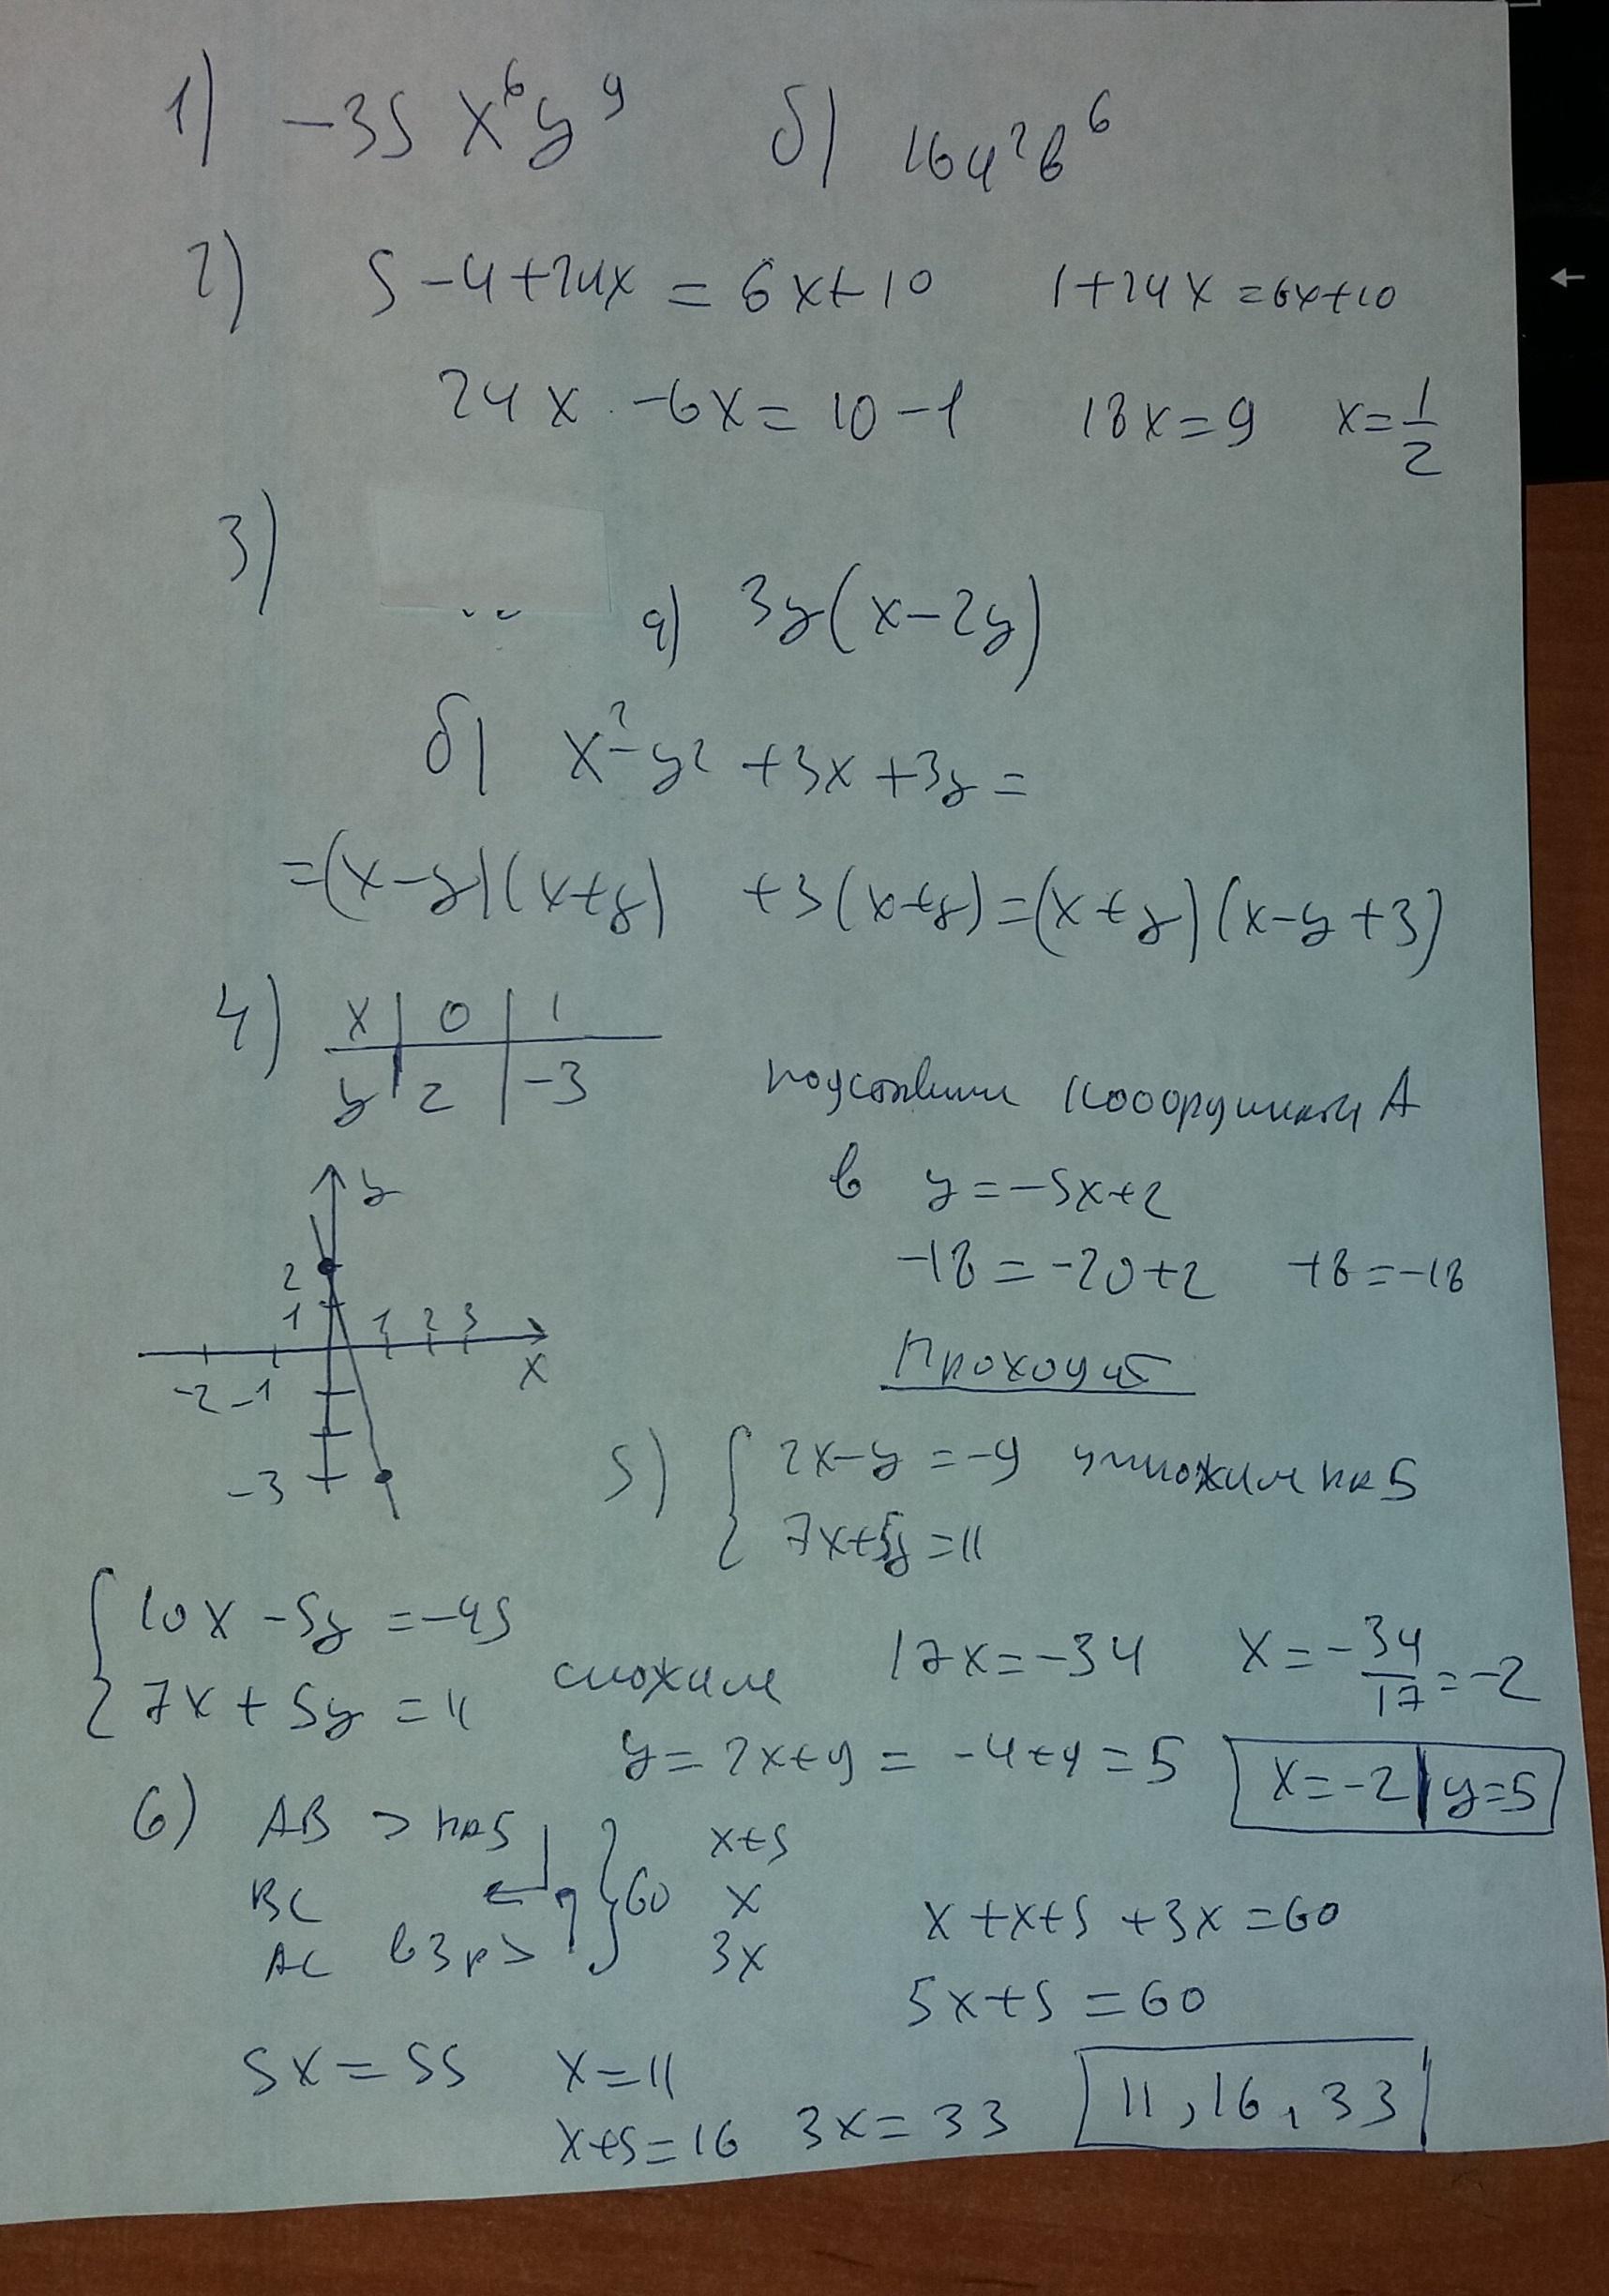 1) -35 x⁶y⁹ б) 16a²b⁶
2) 5-4+24x = 6x+10 1+24x=6x+10
24x -6x = 10-1 18x=9 x=1/2
3)
a) 3y(x-2y)
б) x²-y²+3x+3y=
=(x-y)(x+y) +3(x+y)=(x+y)(x-y+3)
4) x | 0 | 1
y | 2 | -3
подставим координаты A
в y=-5x+2
-18=-20+2 -18=-18
Проходит
y
2
1 1 2 3
-2 -1 x
-3
5) { 2x-y=-9 умножим на 5
7x+5y=11
{ 10x-5y=-45
7x+5y=11 сложим 17x=-34 x=-34/17=-2
y=2x+9=-4+9=5 x=-2 | y=5
6) AB > на 5 } 60 x+5
BC x
AC в 3 р > 3x
x+x+5+3x=60
5x+5=60
5x=55 x=11
x+5=16 3x=33 11, 16, 33